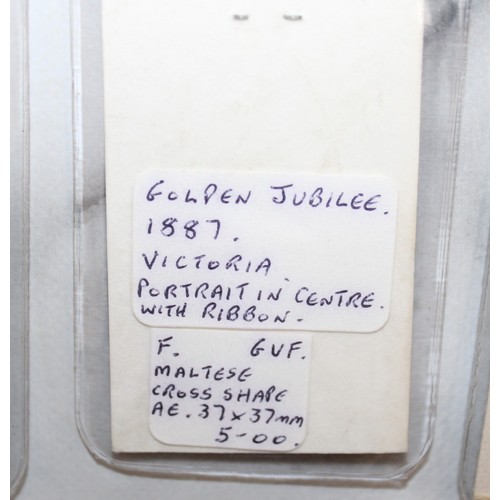 GOLDEN JUBILEE.
1887.
VICTORIA.
PORTRAIT IN CENTRE.
WITH RIBBON.
F. GVF.
MALTESE
CROSS SHAPE
AE. 37x37mm
5-00.